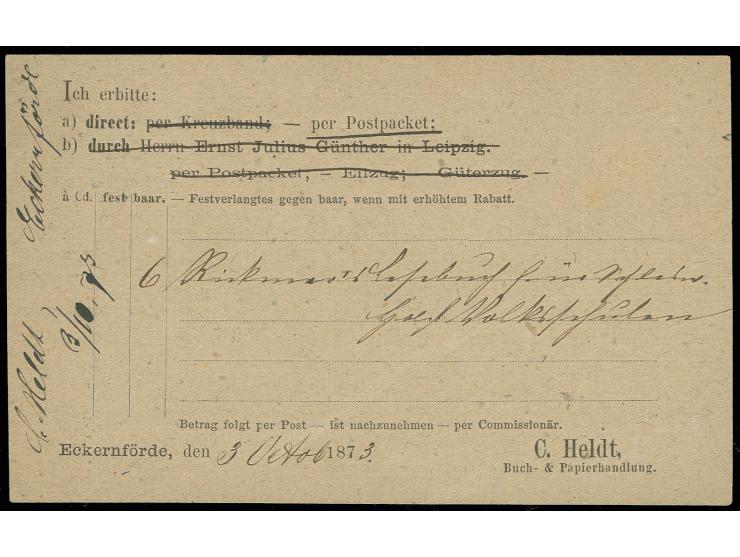 Ich erbitte:
a) direct: per Kreuzband; — per Postpacket;
b) durch Herrn Ernst Julius Günther in Leipzig.
per Postpacket; — Eilzug; — Güterzug. —
à Cd. fest baar. — Festverlangtes gegen baar, wenn mit erhöhtem Rabatt.
6 Rickmer's Lesebuch für Schlesw.
Holst Volksschulen
Betrag folgt per Post — ist nachzunehmen — per Commissionär.
Eckernförde, den 3 Octob 1873.
C. Heldt,
Buch- & Papierhandlung.
C. Heldt, Eckernförde
3/10. 73